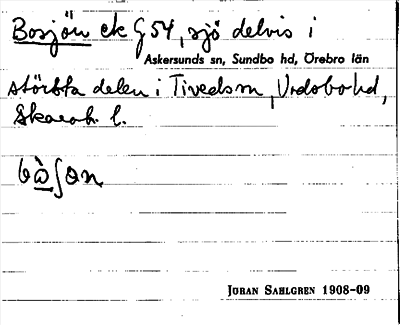 Bosjön ek G 54, sjö delvis i
Askersunds sn, Sundbo hd, Örebro län
största delen i Tiveds sn, Vadsbo hd,
Skarab. l.
bὼʃơn
JÖRAN SAHLGREN 1908-09